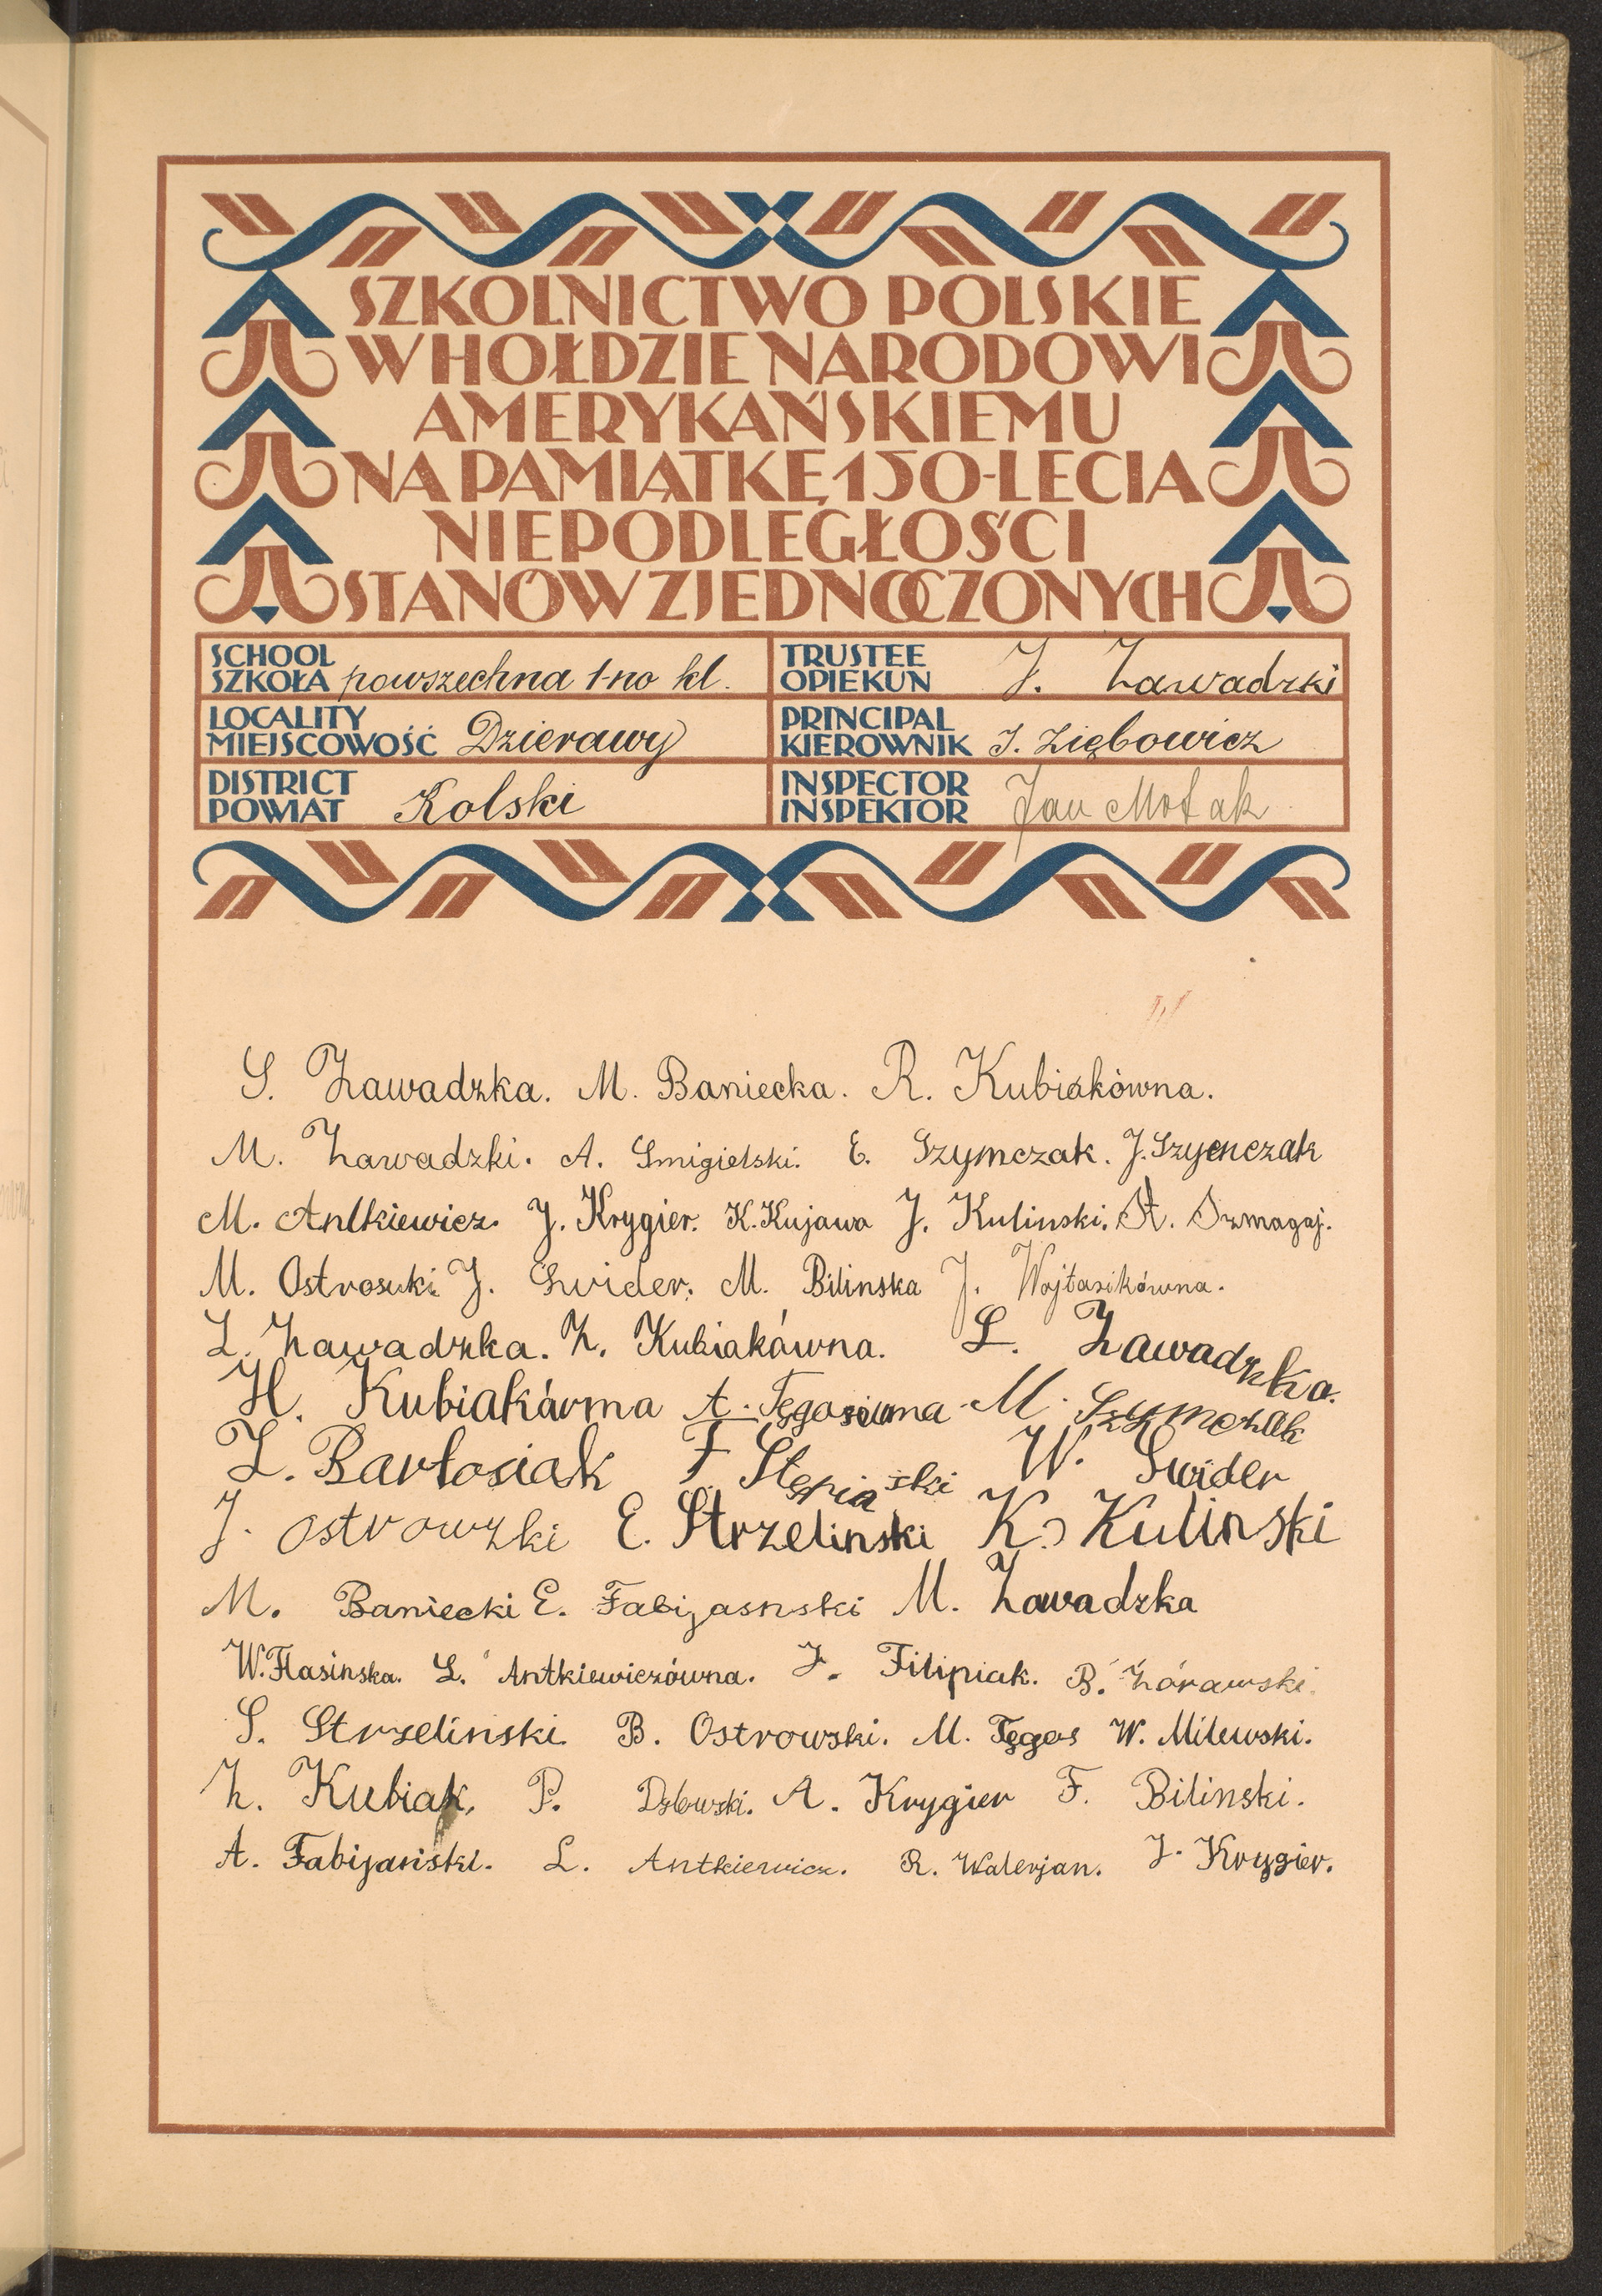 SZKOLNICTWO POLSKIE
W HOŁDZIE NARODOWI
AMERYKAŃSKIEMU
NA PAMIĄTKĘ 150-LECIA
NIEPODLEGŁOŚCI
STANÓW ZJEDNOCZONYCH
SCHOOL
SZKOŁA powszechna 1-no kl.
TRUSTEE
OPIEKUN J. Zawadzki
LOCALITY
MIEJSCOWOŚĆ Dzierawy
PRINCIPAL
KIEROWNIK J. Ziębowicz
DISTRICT
POWIAT Kolski
INSPECTOR
INSPEKTOR Jan Motak
S. Zawadzka. M. Baniecka. R. Kubiakówna.
M. Zawadzki. A. Smigielski. E. Szymczak. J. Szyenczak
M. Antkiewicz. J. Krygier. K. Kujawa J. Kulinski. St. Szmagaj.
M. Ostrowki J. Swider. M. Bilinska J. Wojtasikówna.
L. Zawadzka. Z. Kubiakówna. L. Zawadzka.
H. Kubiakówna A. M. Szymczak
Z. Bartosiak F. W. Swider
J. Ostrowzki E. Strzelinski K. Kulinski
M. Baniecki E. Fabijasnski M. Zawadzka
W. Flasinska. L. Antkiewiczówna. J. Filipiak. B. Zórawski.
S. Strzelinski B. Ostrowski. M. Tęgos W. Milewski.
Z. Kubiak, P. A. Krygier F. Bilinski.
A. Fabijański. L. Antkiewicz. R. Walerjan. J. Krygier.